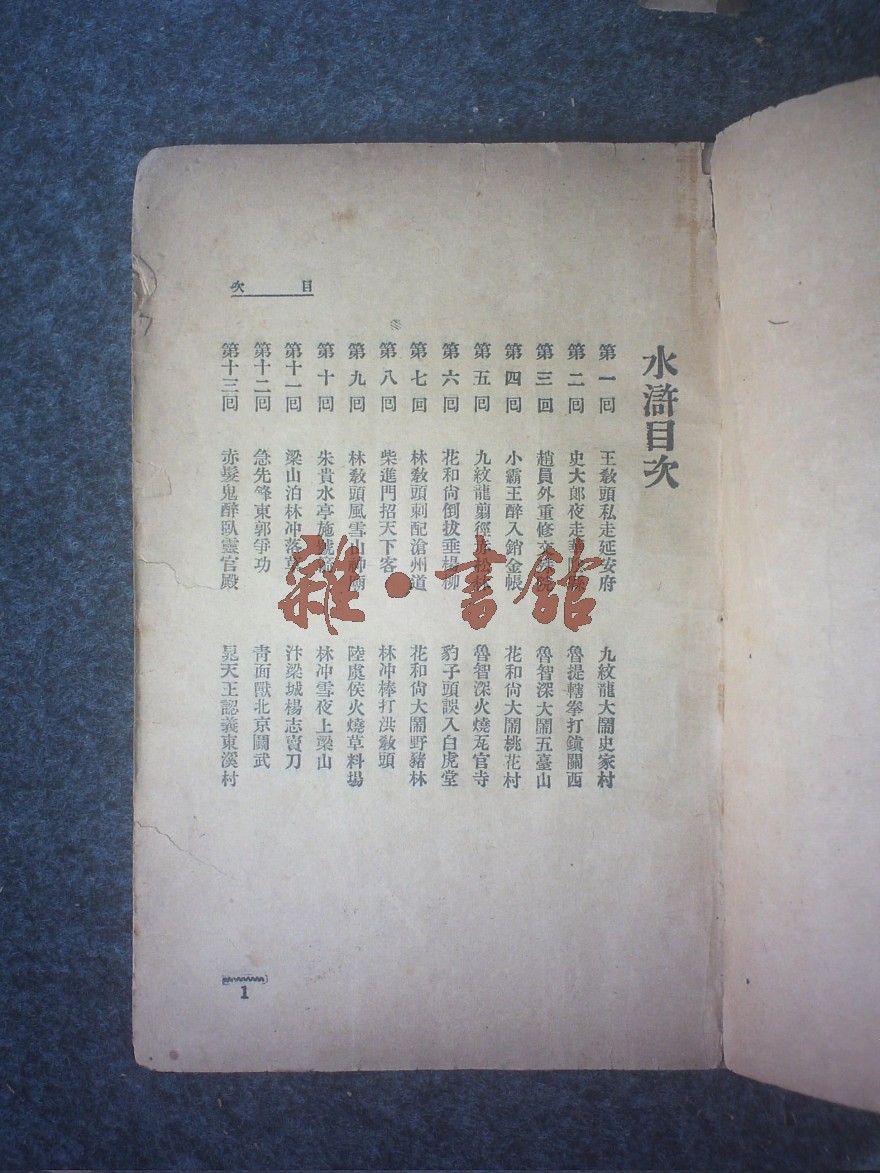 水滸目次
第一回 王敎頭私走延安府 九紋龍大鬧史家村
第二回 史大郎夜走華陰縣 魯提轄拳打鎭關西
第三回 趙員外重修文殊院 魯智深大鬧五臺山
第四回 小霸王醉入銷金帳 花和尙大鬧桃花村
第五回 九紋龍翦徑赤松林 魯智深火燒瓦官寺
第六回 花和尙倒拔垂楊柳 豹子頭誤入白虎堂
第七回 林敎頭刺配滄州道 花和尙大鬧野豬林
第八回 柴進門招天下客 林冲棒打洪敎頭
第九回 林敎頭風雪山神廟 陸虞侯火燒草料場
第十回 朱貴水亭施號箭 林冲雪夜上梁山
第十一回 梁山泊林冲落草 汴梁城楊志賣刀
第十二回 急先鋒東郭爭功 靑面獸北京鬭武
第十三回 赤髮鬼醉臥靈官殿 晁天王認義東溪村
目次
1
雜·書館